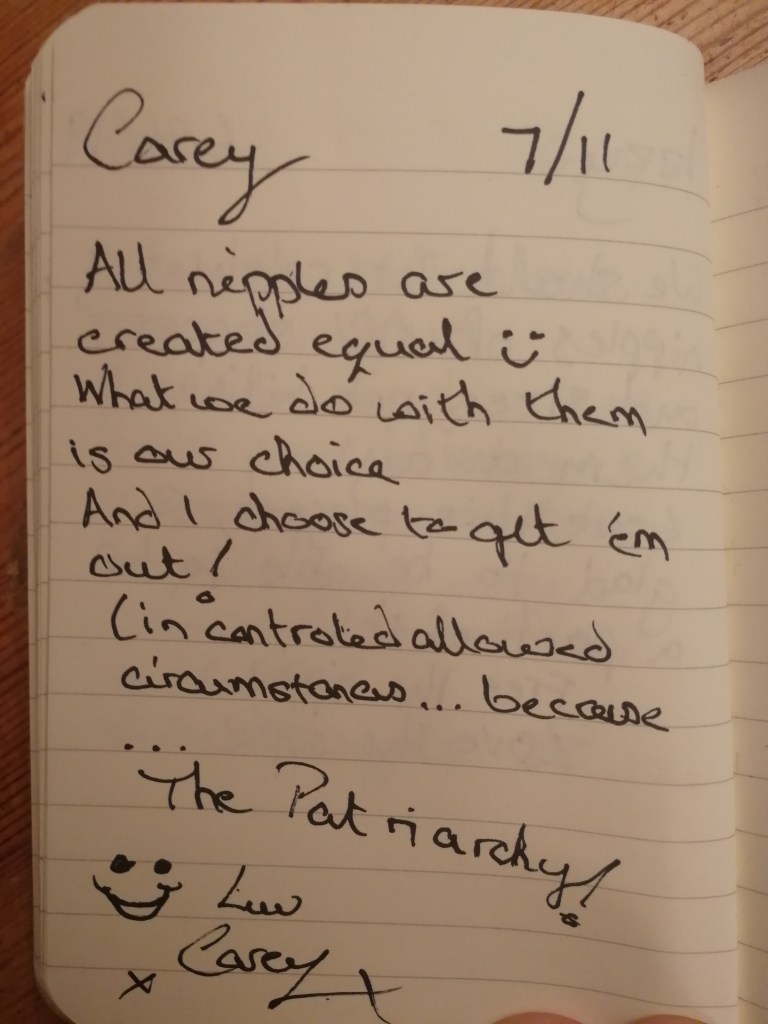 Carey 7/11
All nipples are
created equal
What we do with them
is our choice
And I choose to get 'em
out!
(in controled allowed
circumstances... because
...
The Patriarchy!
Luv
Carey
x x